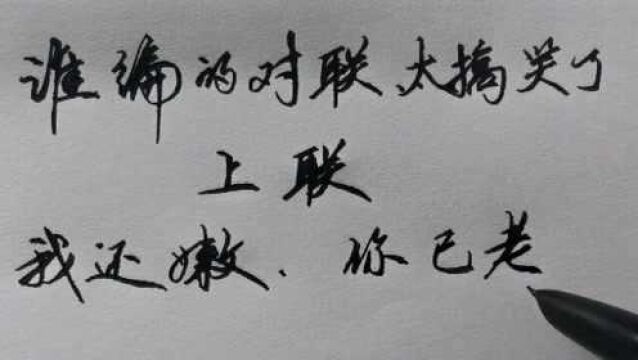 谁编的对联太搞哭了
上联
我还嫩、你已老